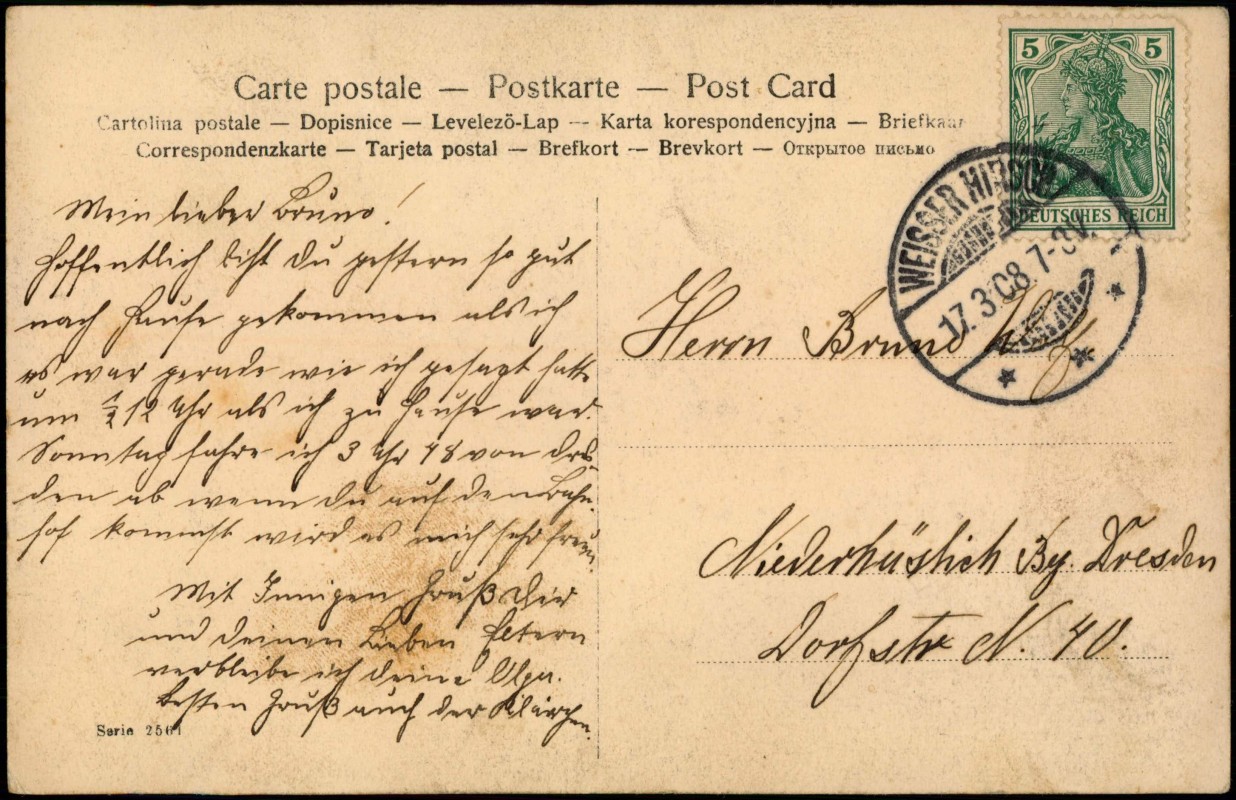 Carte postale — Postkarte — Post Card
Cartolina postale — Dopisnice — Levelezö-Lap — Karta korespondencyjna — Briefkaar
Correspondenzkarte — Tarjeta postal — Brefkort — Brevkort — Открытое письмо
5 5
DEUTSCHES REICH
WEISSER HIRSCH
17.3.08. 7-8V.
Mein lieber Bruno!
Hoffentlich bist du gestern so gut
nach Hause gekommen als ich
es war gerade wie ich gesagt hatte
um ½ 12 Uhr als ich zu Hause war.
Sonntag fahre ich 3 Uhr 48 von Dres
den ab wenn du auf den Bahn-
hof kommst wird es mich sehr freuen
Mit Innigen Gruß Dir
und deinen Lieben Eltern
verbleibe ich deine Olga.
besten Gruß auch der Klärchen.
Herrn Bruno
Niederhäslich By. Dresden
Dorfstr N. 40.
Serie 2561